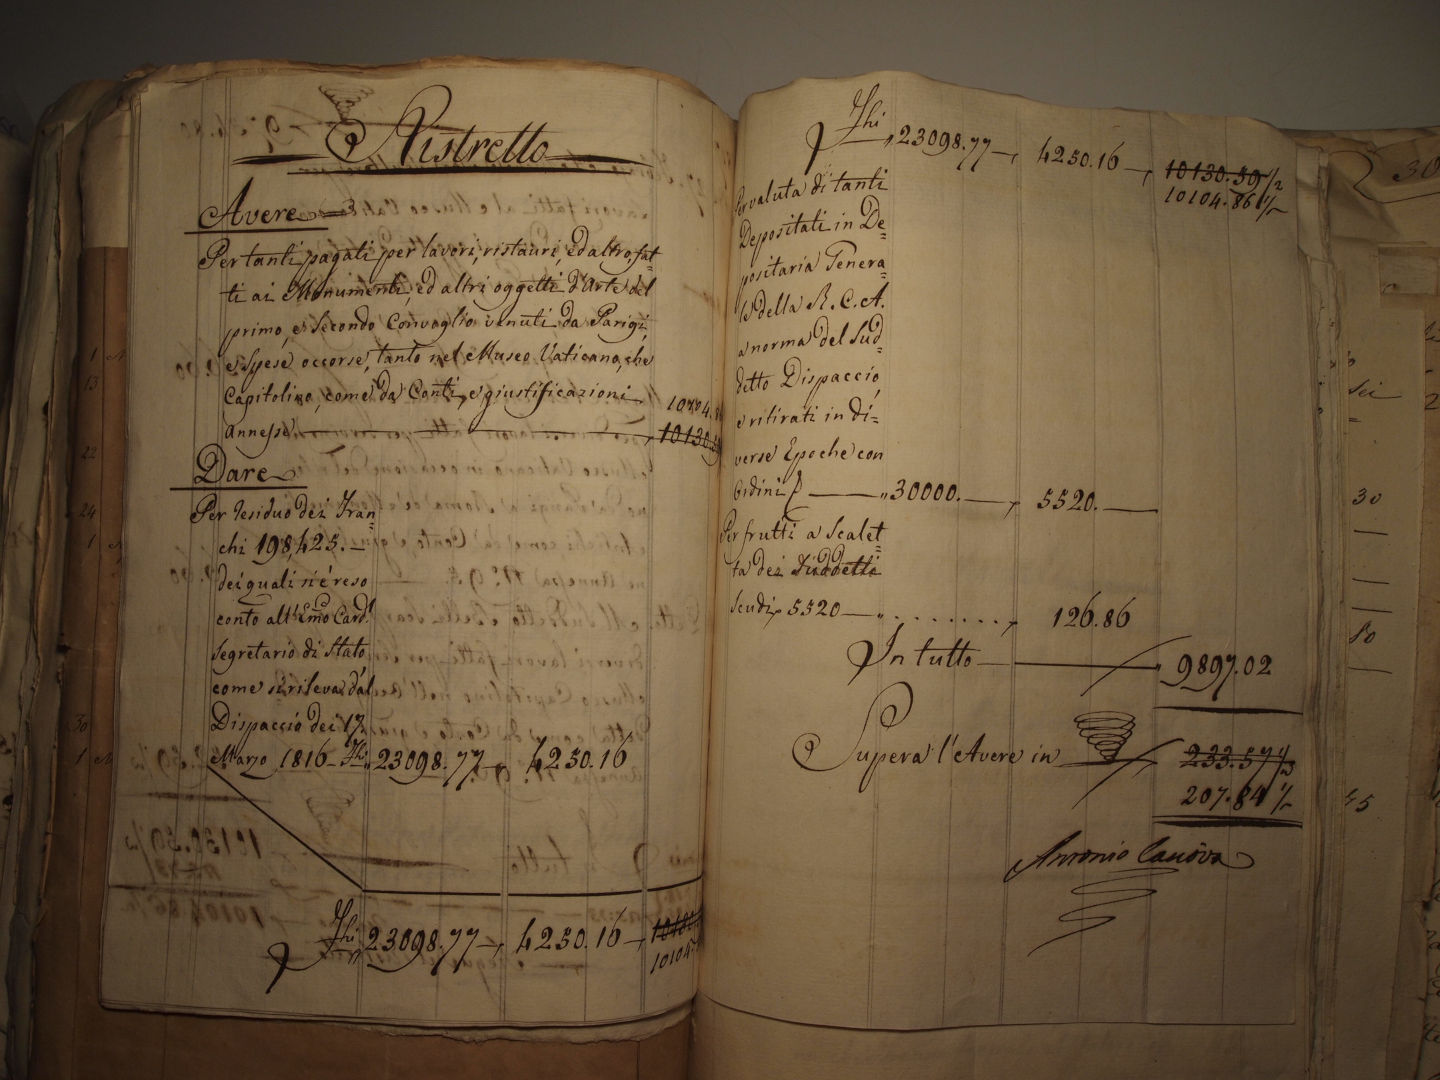 Ristretto
Avere
Per tanti pagati per lavori, ristauri, ed altro fat=
ti ai Monumenti, ed altri oggetti d'Arte del
primo, e secondo Convoglio venuti da Parigi,
e spese occorse, tanto nel Museo Vaticano, che
Capitolino, come da Conti, e giustificazioni
annesse 10104.8
10130.59
Dare
Per residuo dei Fran=
chi 198,425.
dei quali si è reso
conto all'Emo Card.l
Segretario di Stato
come si rileva dal
Dispaccio dei 17
Marzo 1816 Fhi 23098.77 4250.16
Fhi 23098.77 4250.16 10130
10104.
Fhi 23098.77 4250.16 10130.59 1/2
10104.86 1/2
Per valuta di tanti
Depositati in De=
positaria Genera=
le della R. C. A.
a norma del Sud=
detto Dispaccio,
e ritirati in di=
verse Epoche con
Ordini 30000. 5520.
Per frutti a Scalet=
ta dei Suddetti
Scudi 5520 126.86
In tutto 9897.02
Supera l'Avere in 233.57 1/2
207.84 1/2
Antonio Canova